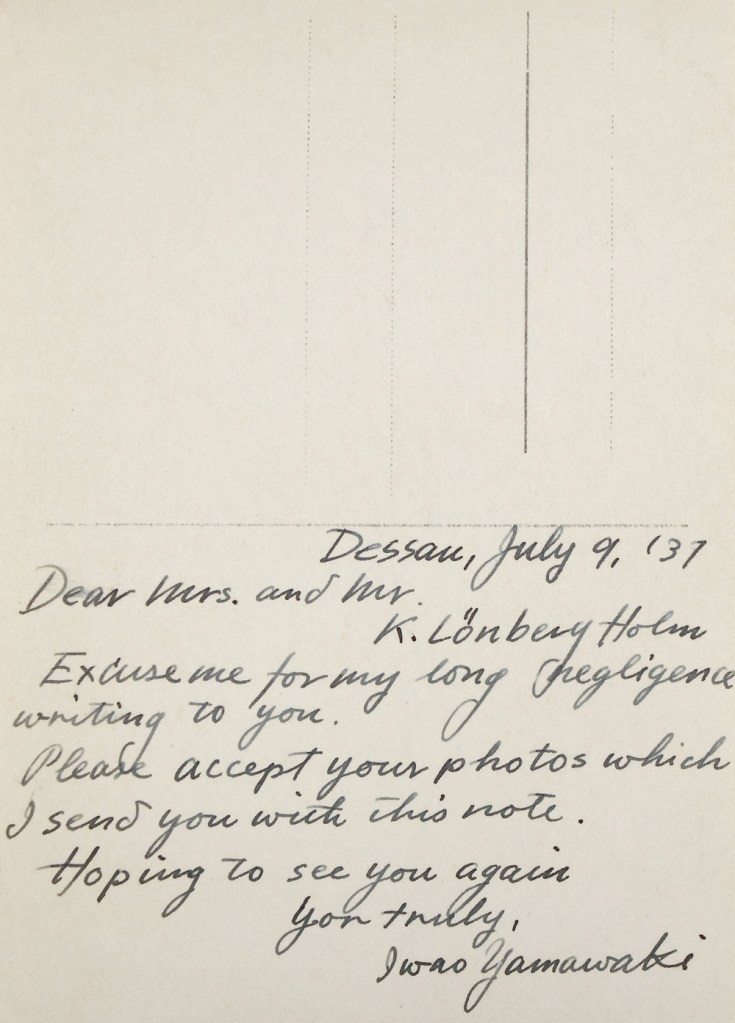 Dessau, July 9, '37
Dear Mrs. and Mr.
K. Lönberg Holm
Excuse me for my long negligence
writing to you.
Please accept your photos which
I send you with this note.
Hoping to see you again
Yor truly,
Iwao Yamawaki